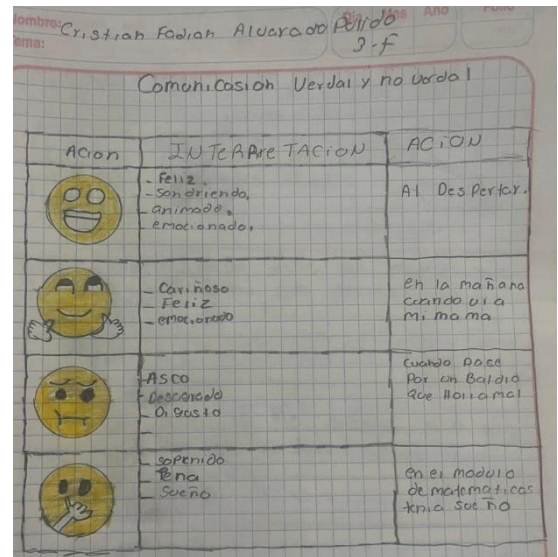 Nombre: Cristian Fadian Alvarado Pulido
Mes Ano
Tema:
3-F
Comunicasion Verdal y no verdal
Acion
INTERPreTACiON
ACiON
- Feliz.
- Sondriendo.
- animado.
- emocionado.
At Despertar.
- Cariñoso
- Feliz
- emocionado
en la mañana
cuando vi a
mi mama
- Asco
- Desagrado
- Disgusto
Cuando pace
Por un Baldio
que
- Pena
- Sueño
en el modulo
de matematicas
tenia sueño